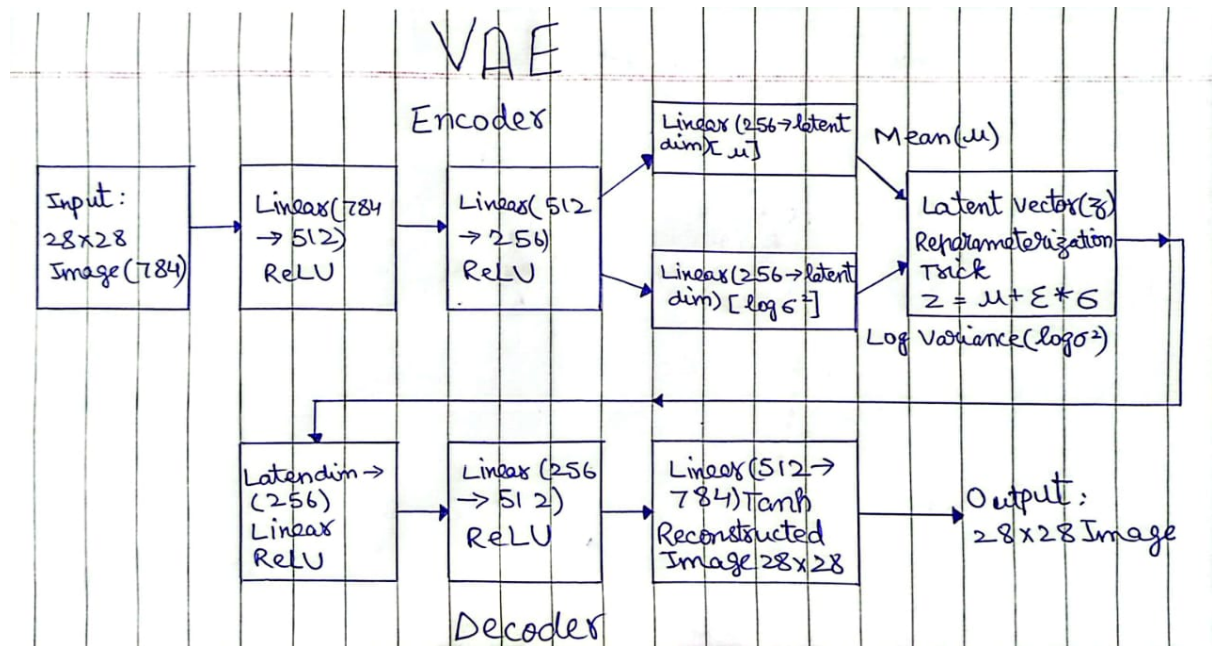 VAE
Encoder
Input:
28x28
Image(784)
Linear(784
→ 512)
ReLU
Linear(512
→ 256)
ReLU
Linear(256→latent
dim)[μ]
Linear(256→latent
dim)[logσ²]
Mean(μ)
Latent vector(z)
Reparameterization
Trick
z = μ + ε * σ
Log Variance(logσ²)
Latendim →
(256)
Linear
ReLU
Linear(256
→ 512)
ReLU
Linear(512→
784)Tanh
Reconstructed
Image 28x28
Output:
28x28 Image
Decoder